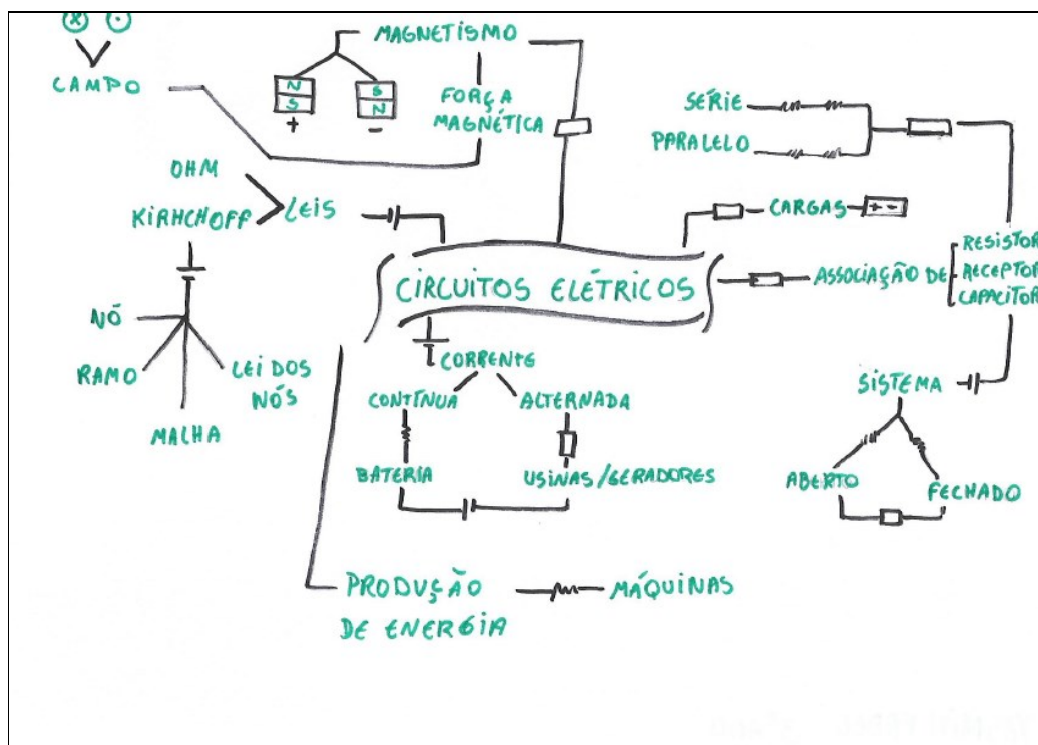 MAGNETISMO
CAMPO
N
S
S
N
+
-
FORÇA
MAGNÉTICA
SÉRIE
PARALELO
OHM
KIRHCHOFF
LEIS
CARGAS
+ -
CIRCUITOS ELÉTRICOS
ASSOCIAÇÃO DE
RESISTOR
RECEPTOR
CAPACITOR
NÓ
RAMO
MALHA
LEI DOS
NÓS
CORRENTE
CONTÍNUA
ALTERNADA
BATERIA
USINAS/GERADORES
SISTEMA
ABERTO
FECHADO
PRODUÇÃO
DE ENERGIA
MÁQUINAS